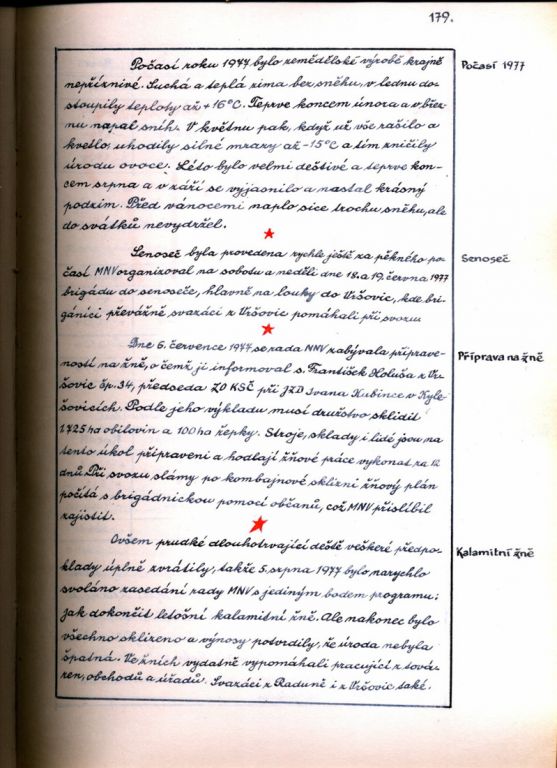 179.
Počasí roku 1977 bylo zemědělské výrobě krajně
Počasí 1977
nepříznivé. Suchá a teplá zima bez sněhu, v lednu do-
stoupily teploty až +16°C. Teprve koncem února a v břez-
nu napal sníh. V květnu pak, když už vše rašilo a
kvetlo, uhodily silné mrazy až -15°C a tím zničily
úrodu ovoce. Léto bylo velmi deštivé a teprve kon-
cem srpna a v září se vyjasnilo a nastal krásný
podzim. Před vánocemi naplo sice trochu sněhu, ale
do svátků nevydržel.
Senoseč byla provedena rychle ještě za pěkného po-
Senoseč
časí MNV organizoval na sobotu a neděli dne 18. a 19. června 1977
brigádu do senoseče, hlavně na louky do Vršovic, kde bri-
gáníci převážně svazáci z Vršovic pomáhali při svozu
Dne 6. července 1977 se rada MNV zabývala připrave-
Příprava na žně
ností na žně, o čemž ji informoval s. František Holuša z Vr-
šovic čp. 34, předseda ZO KSČ při JZD Ivana Kubince v Kyle-
šovicích. Podle jeho výkladu musí družstvo sklidit
1725 ha obilovin a 100 ha řepky. Stroje, sklady i lidé jsou na
tento úkol připraveni a hodlají žňové práce vykonat za 12
dnů. Při svozu slámy po kombajnové sklizni žňový plán
počítá s brigádnickou pomocí občanů, což MNV přislíbil
zajistit.
Ovšem prudké dlouhotrvající deště veškeré předpo-
Kalamitní žně
klady úplně zvrátily, takže 5. srpna 1977 bylo narychlo
svoláno zasedání rady MNV s jediným bodem programu;
jak dokončit letošní kalamitní žně. Ale nakonec bylo
všechno sklizeno a výnosy potvrdily, že úroda nebyla
špatná. Ve žních vydatně vypomáhali pracující z továr
ren, obchodů a úřadů. Svazáci z Raduně i z Vršovic také.